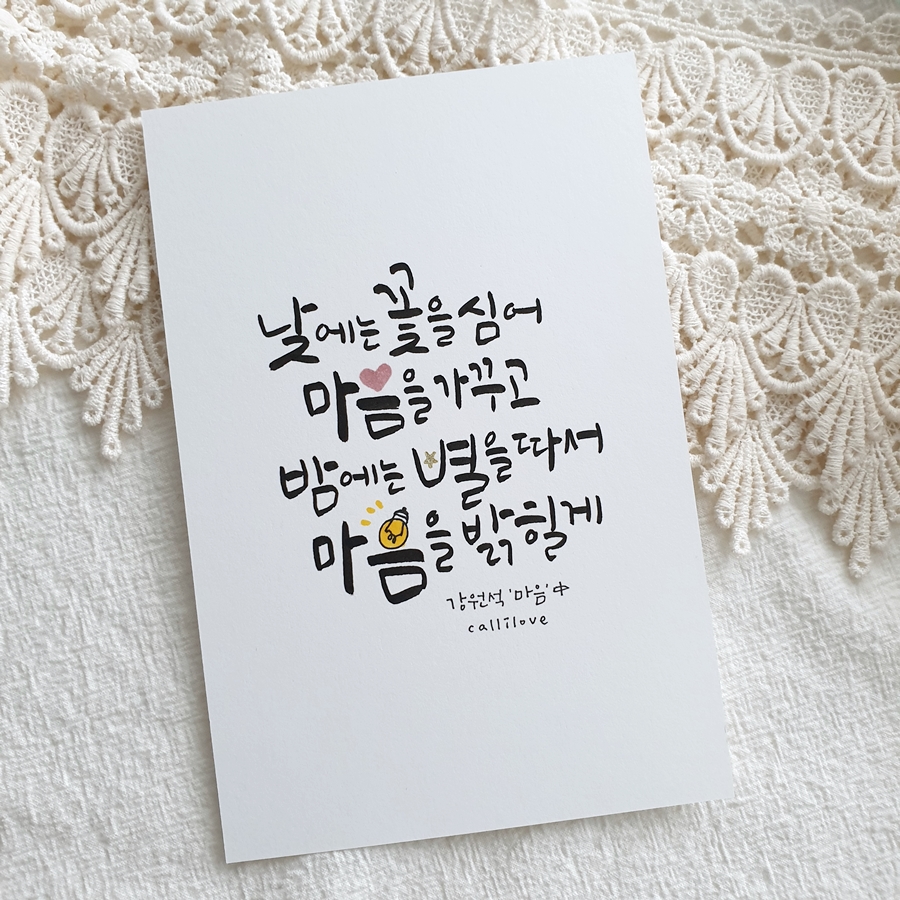 낮에는 꽃을 심어
마음을 가꾸고
밤에는 별을 따서
마음을 밝힐게
강원석 '마음' 中
callilove